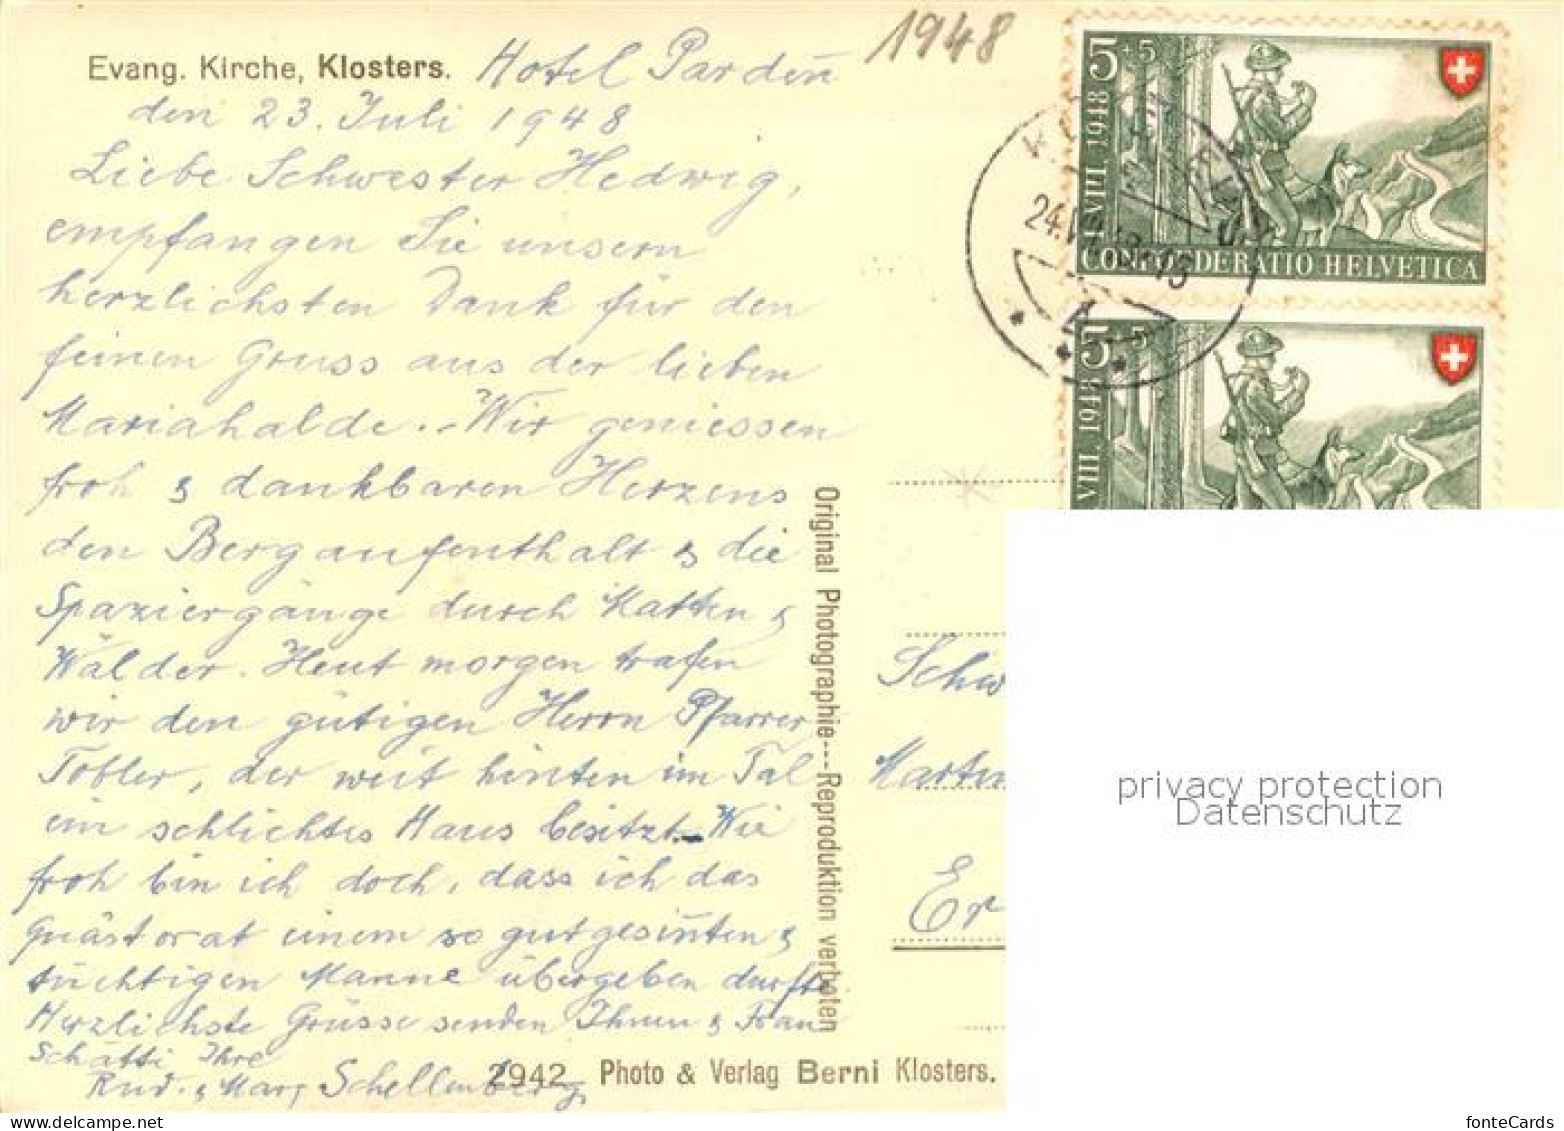 1948
Evang. Kirche, Klosters. Hotel Pardenn
den 23. Juli 1948
Liebe Schwester Hedwig,
empfangen Sie unsern
herzlichsten Dank für den
feinen Gruss aus der lieben
Mariahalde. - Wir geniessen
froh & dankbaren Herzens
den Bergaufenthalt & die
Spaziergänge durch Matten &
Wälder. Heut morgen trafen
wir den gütigen Herrn Pfarrer
Tobler, der weit hinten im Tal
ein schlichtes Haus besitzt. - Wie
froh bin ich doch, dass ich das
Quästorat einem so gutgesinnten &
tüchtigen Manne übergeben durfte.
Herzlichste Grüsse senden Ihnen & Frau
Schätti Ihre
Rud. & Marg Schellenberg
2942 Photo & Verlag Berni Klosters.
Original Photographie---Reproduktion verboten
5+5
I.VIII.1948
CONFOEDERATIO HELVETICA
24.VII.48-13
5+5
VIII.1948
Schw
Martin
Er
privacy protection
Datenschutz
fonteCards